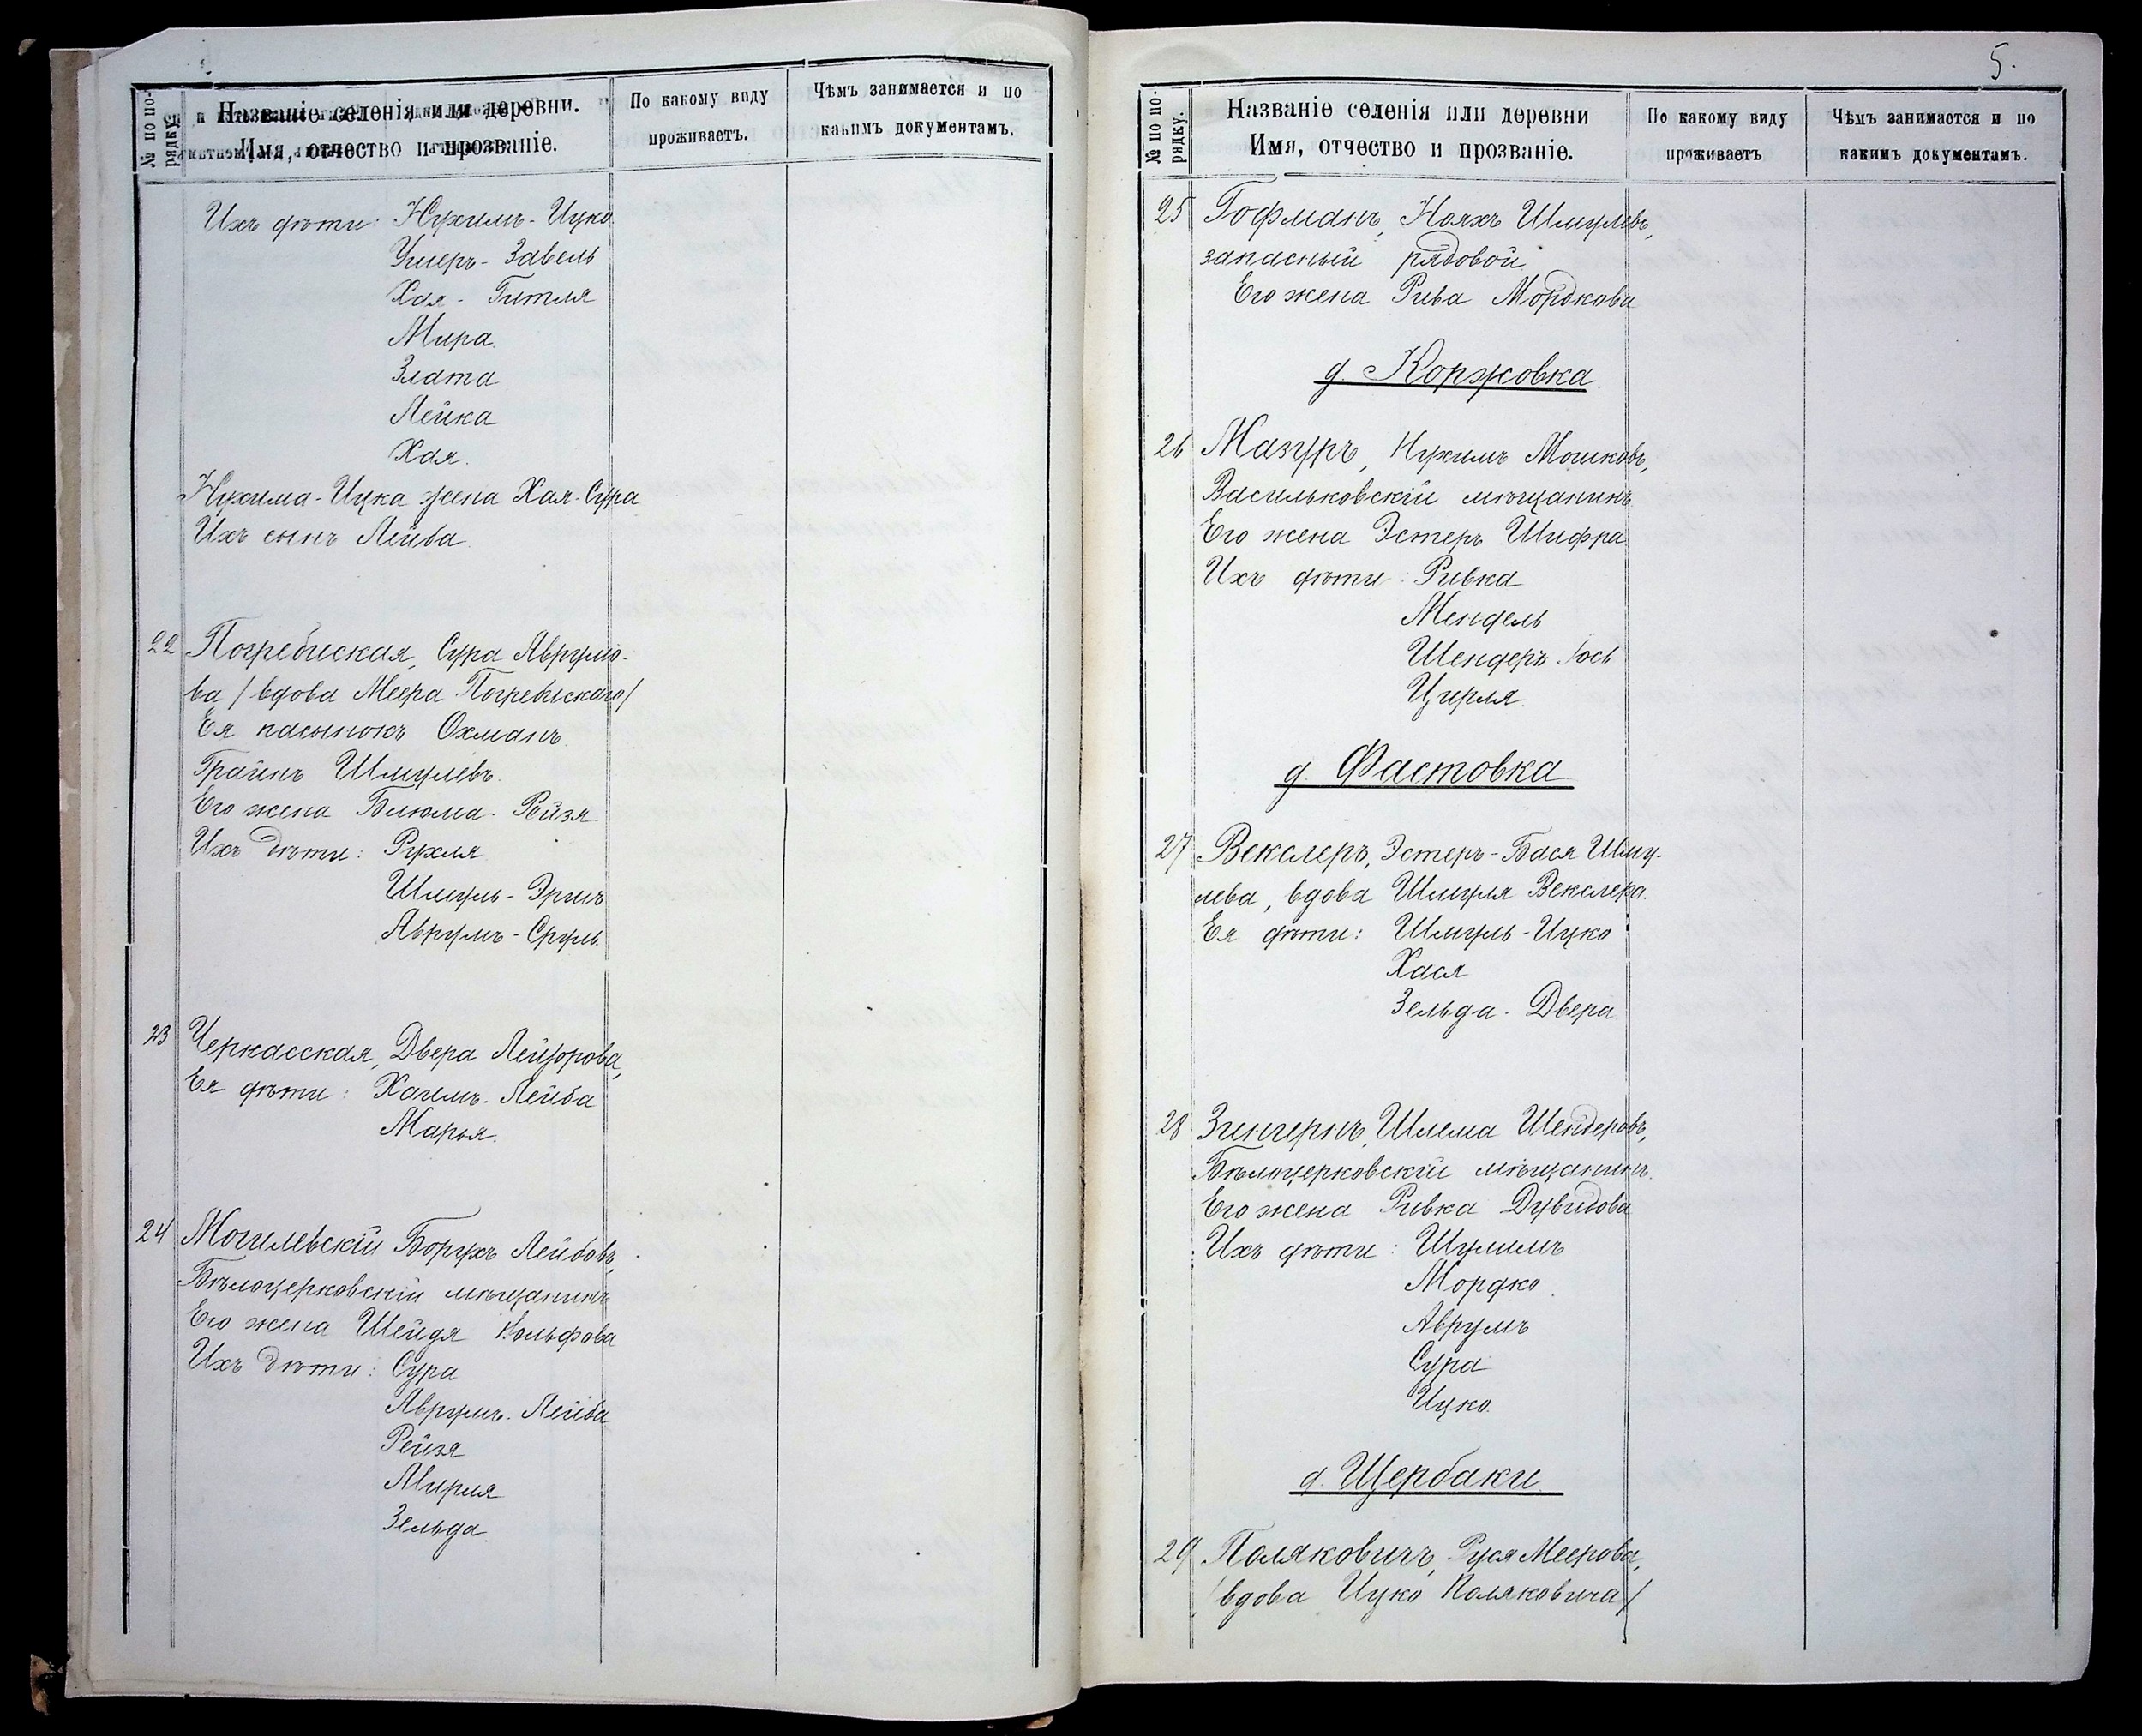 № по по-
рядку.
Названіе селенія или деревни.
Имя, отчество и прозваніе.
По какому виду
проживаетъ.
Чѣмъ занимается и по
какимъ документамъ.
Ихъ дѣти: Нухимъ-Ицко
Ушеръ-Завель
Хая-Гитля
Мира
Злата
Лейка
Хая.
Нухима-Ицка жена Хая-Сура
Ихъ сынъ Лейба
22 Погребиская, Сура Аврумо-
ва /вдова Меера Погребискаго/
Ея пасынокъ Охманъ
Шмулевъ.
Его жена Блюма-Рейзя
Ихъ дѣти: Рухля
Шмуль-
Аврумъ-Сруль.
23 Черкасская, Двера Лейзорова,
Ея дѣти: Хаимъ-Лейба
Марья.
24 Могилевскій Борухъ Лейбовъ,
Бѣлоцерковскій мѣщанинъ
Его жена Шейдя Вольфова
Ихъ дѣти: Сура
Аврумъ-Лейба
Рейзя
Мирля
Зельда.
5.
№ по по-
рядку.
Названіе селенія или деревни
Имя, отчество и прозваніе.
По какому виду
проживаетъ
Чѣмъ занимается и по
какимъ документамъ.
25 Гофманъ, Нояхъ Шмулевъ,
запасный рядовой
Его жена Рива Мордкова
д. Коржовка.
26 Мазуръ, Нухимъ Мошковъ,
Васильковскій мѣщанинъ
Его жена Эстеръ Шифра
Ихъ дѣти: Ривка
Мендель
Шендеръ Іось
Цирля.
д. Фастовка
27 Векслеръ, Эстеръ-Бася Шму-
лева, вдова Шмуля Векслера.
Ея дѣти: Шмуль-Ицко
Хася
Зельда-Двера
28 Зингернъ, Шлема Шендеровъ,
Бѣлоцерковскій мѣщанинъ.
Его жена Ривка Дувидова
Ихъ дѣти: Шулимъ
Мордко.
Аврумъ
Сура
Ицко.
д. Щербаки.
29 Поляковичъ, Руся Меерова,
/вдова Ицко Поляковича/